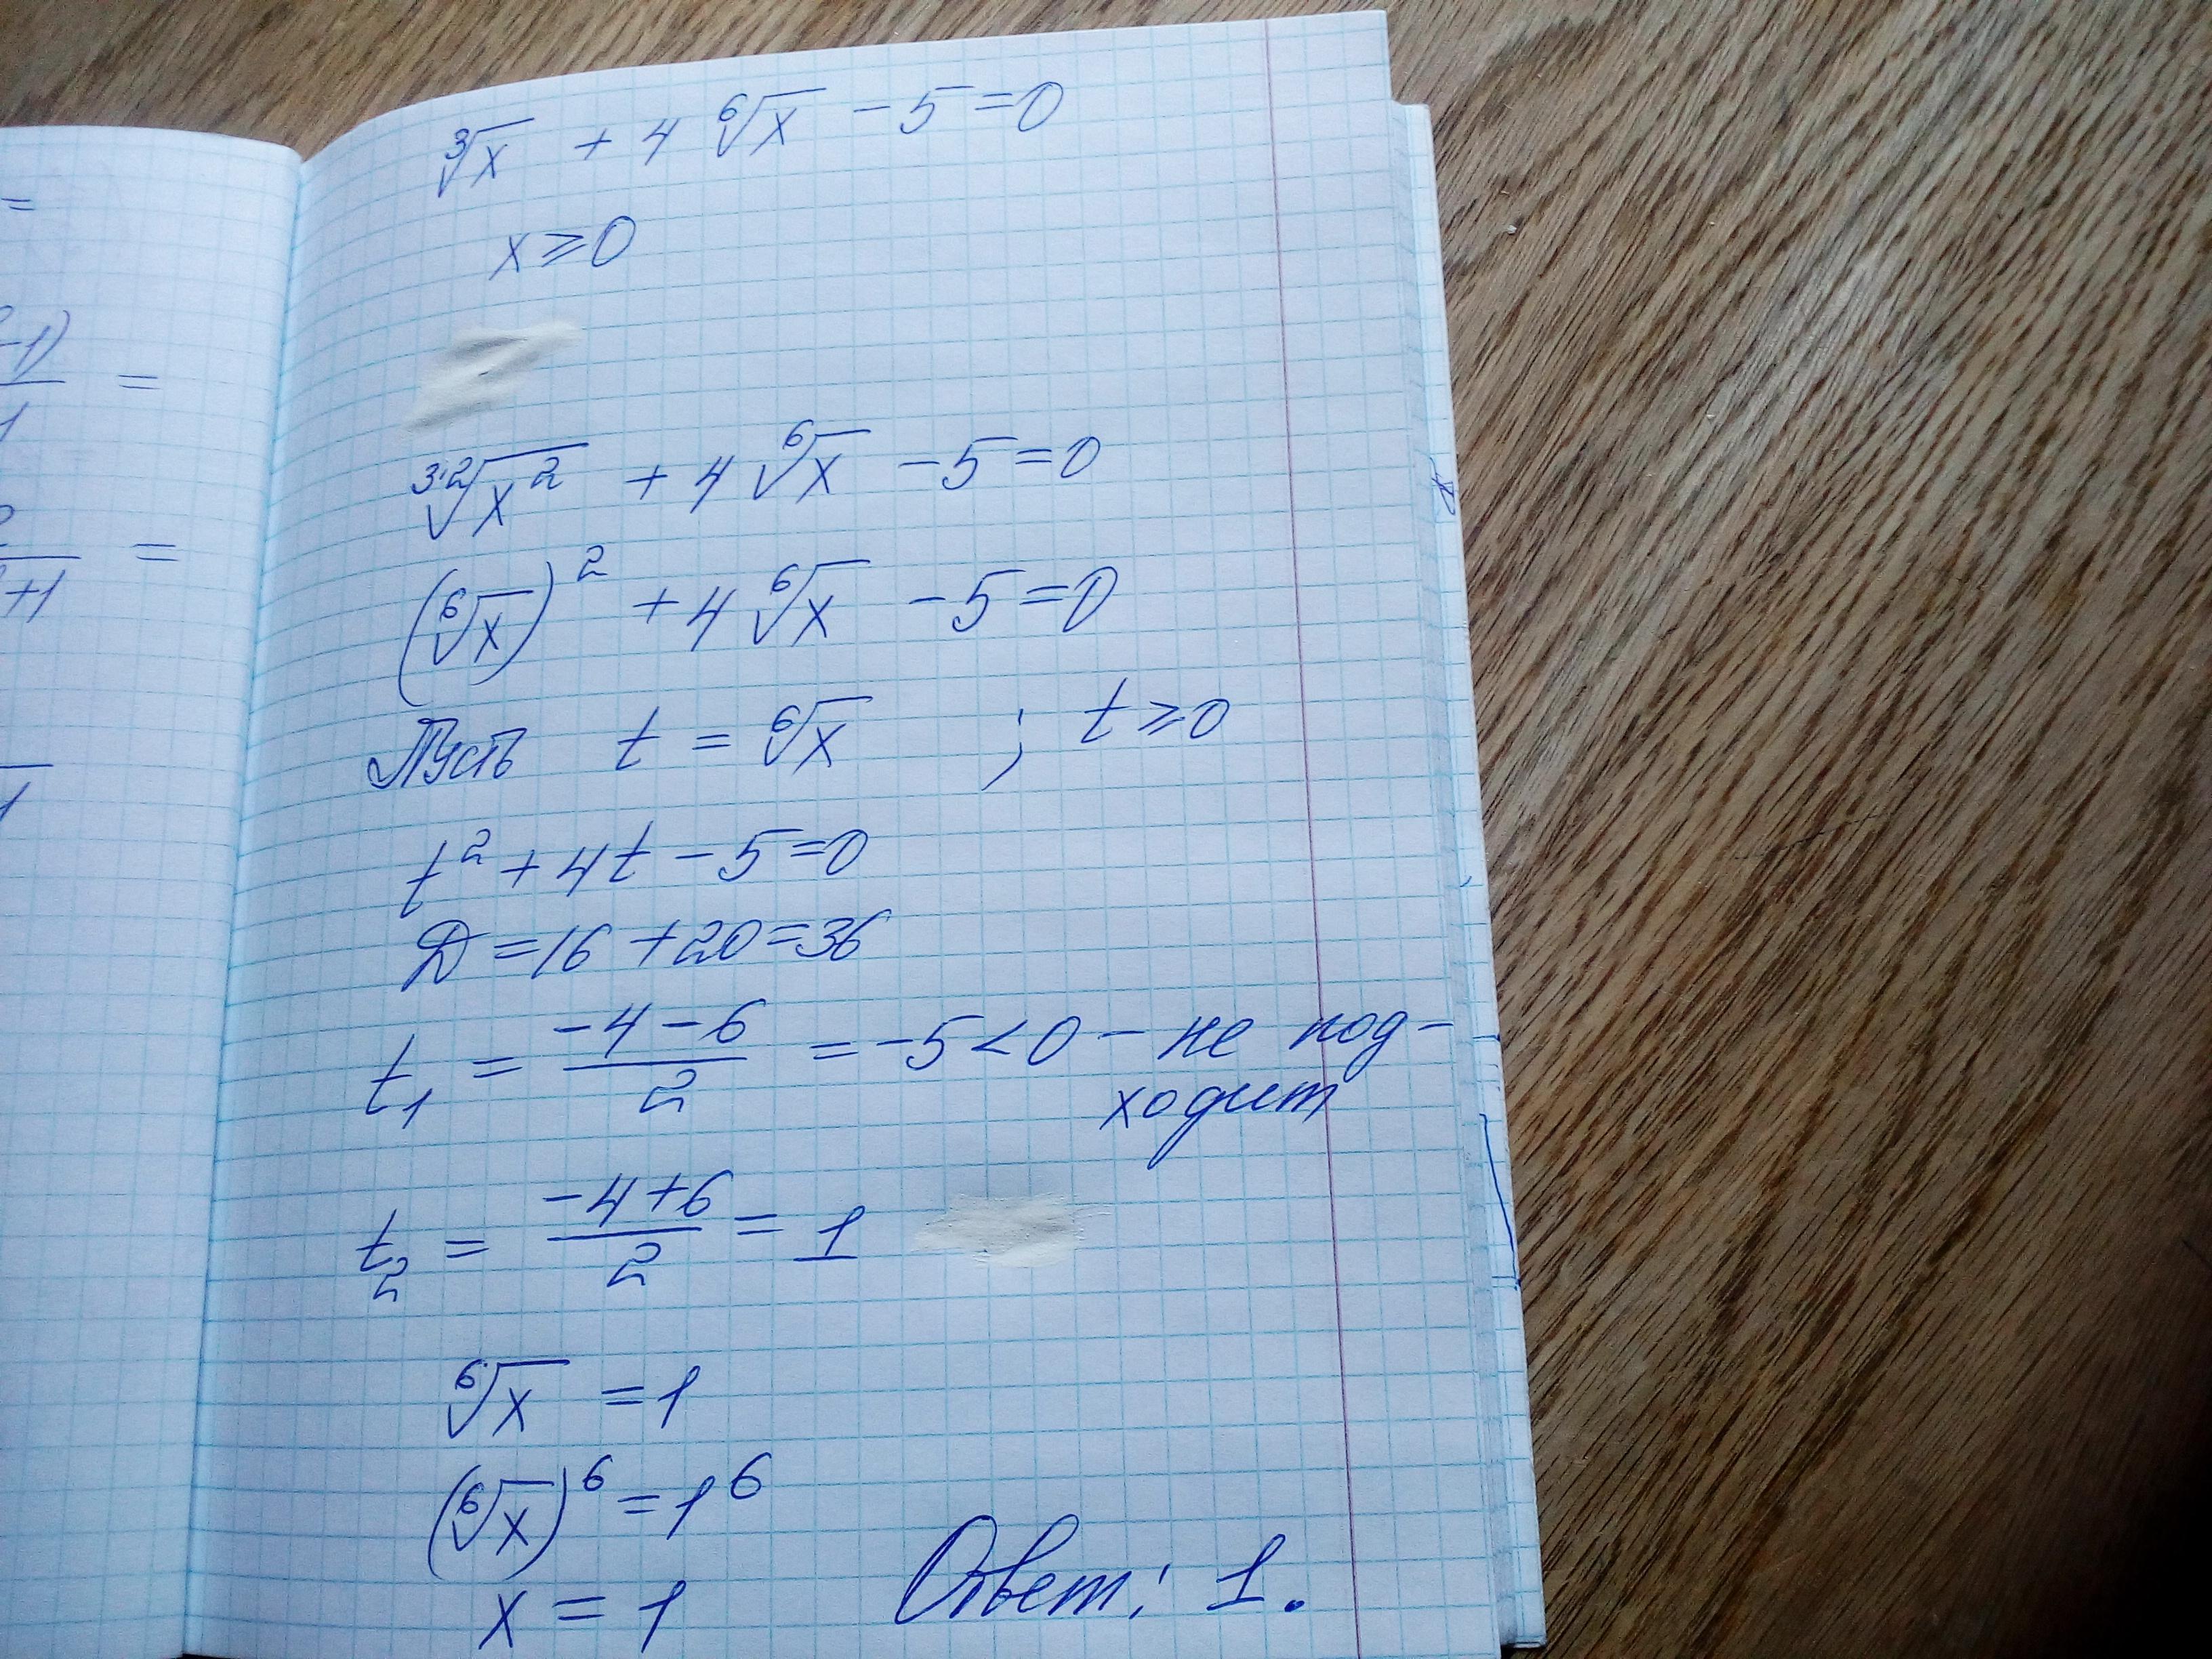 =
-1)
1
=
2
+1
=
1
∛x + 4 ⁶√x - 5 = 0
x ≥ 0
³·²√x² + 4 ⁶√x - 5 = 0
(⁶√x)² + 4 ⁶√x - 5 = 0
Пусть t = ⁶√x ; t ≥ 0
t² + 4t - 5 = 0
Д = 16 + 20 = 36
t₁ = (-4 - 6)/2 = -5 < 0 - не под-
ходит
t₂ = (-4 + 6)/2 = 1
⁶√x = 1
(⁶√x)⁶ = 1⁶
x = 1
Ответ: 1.